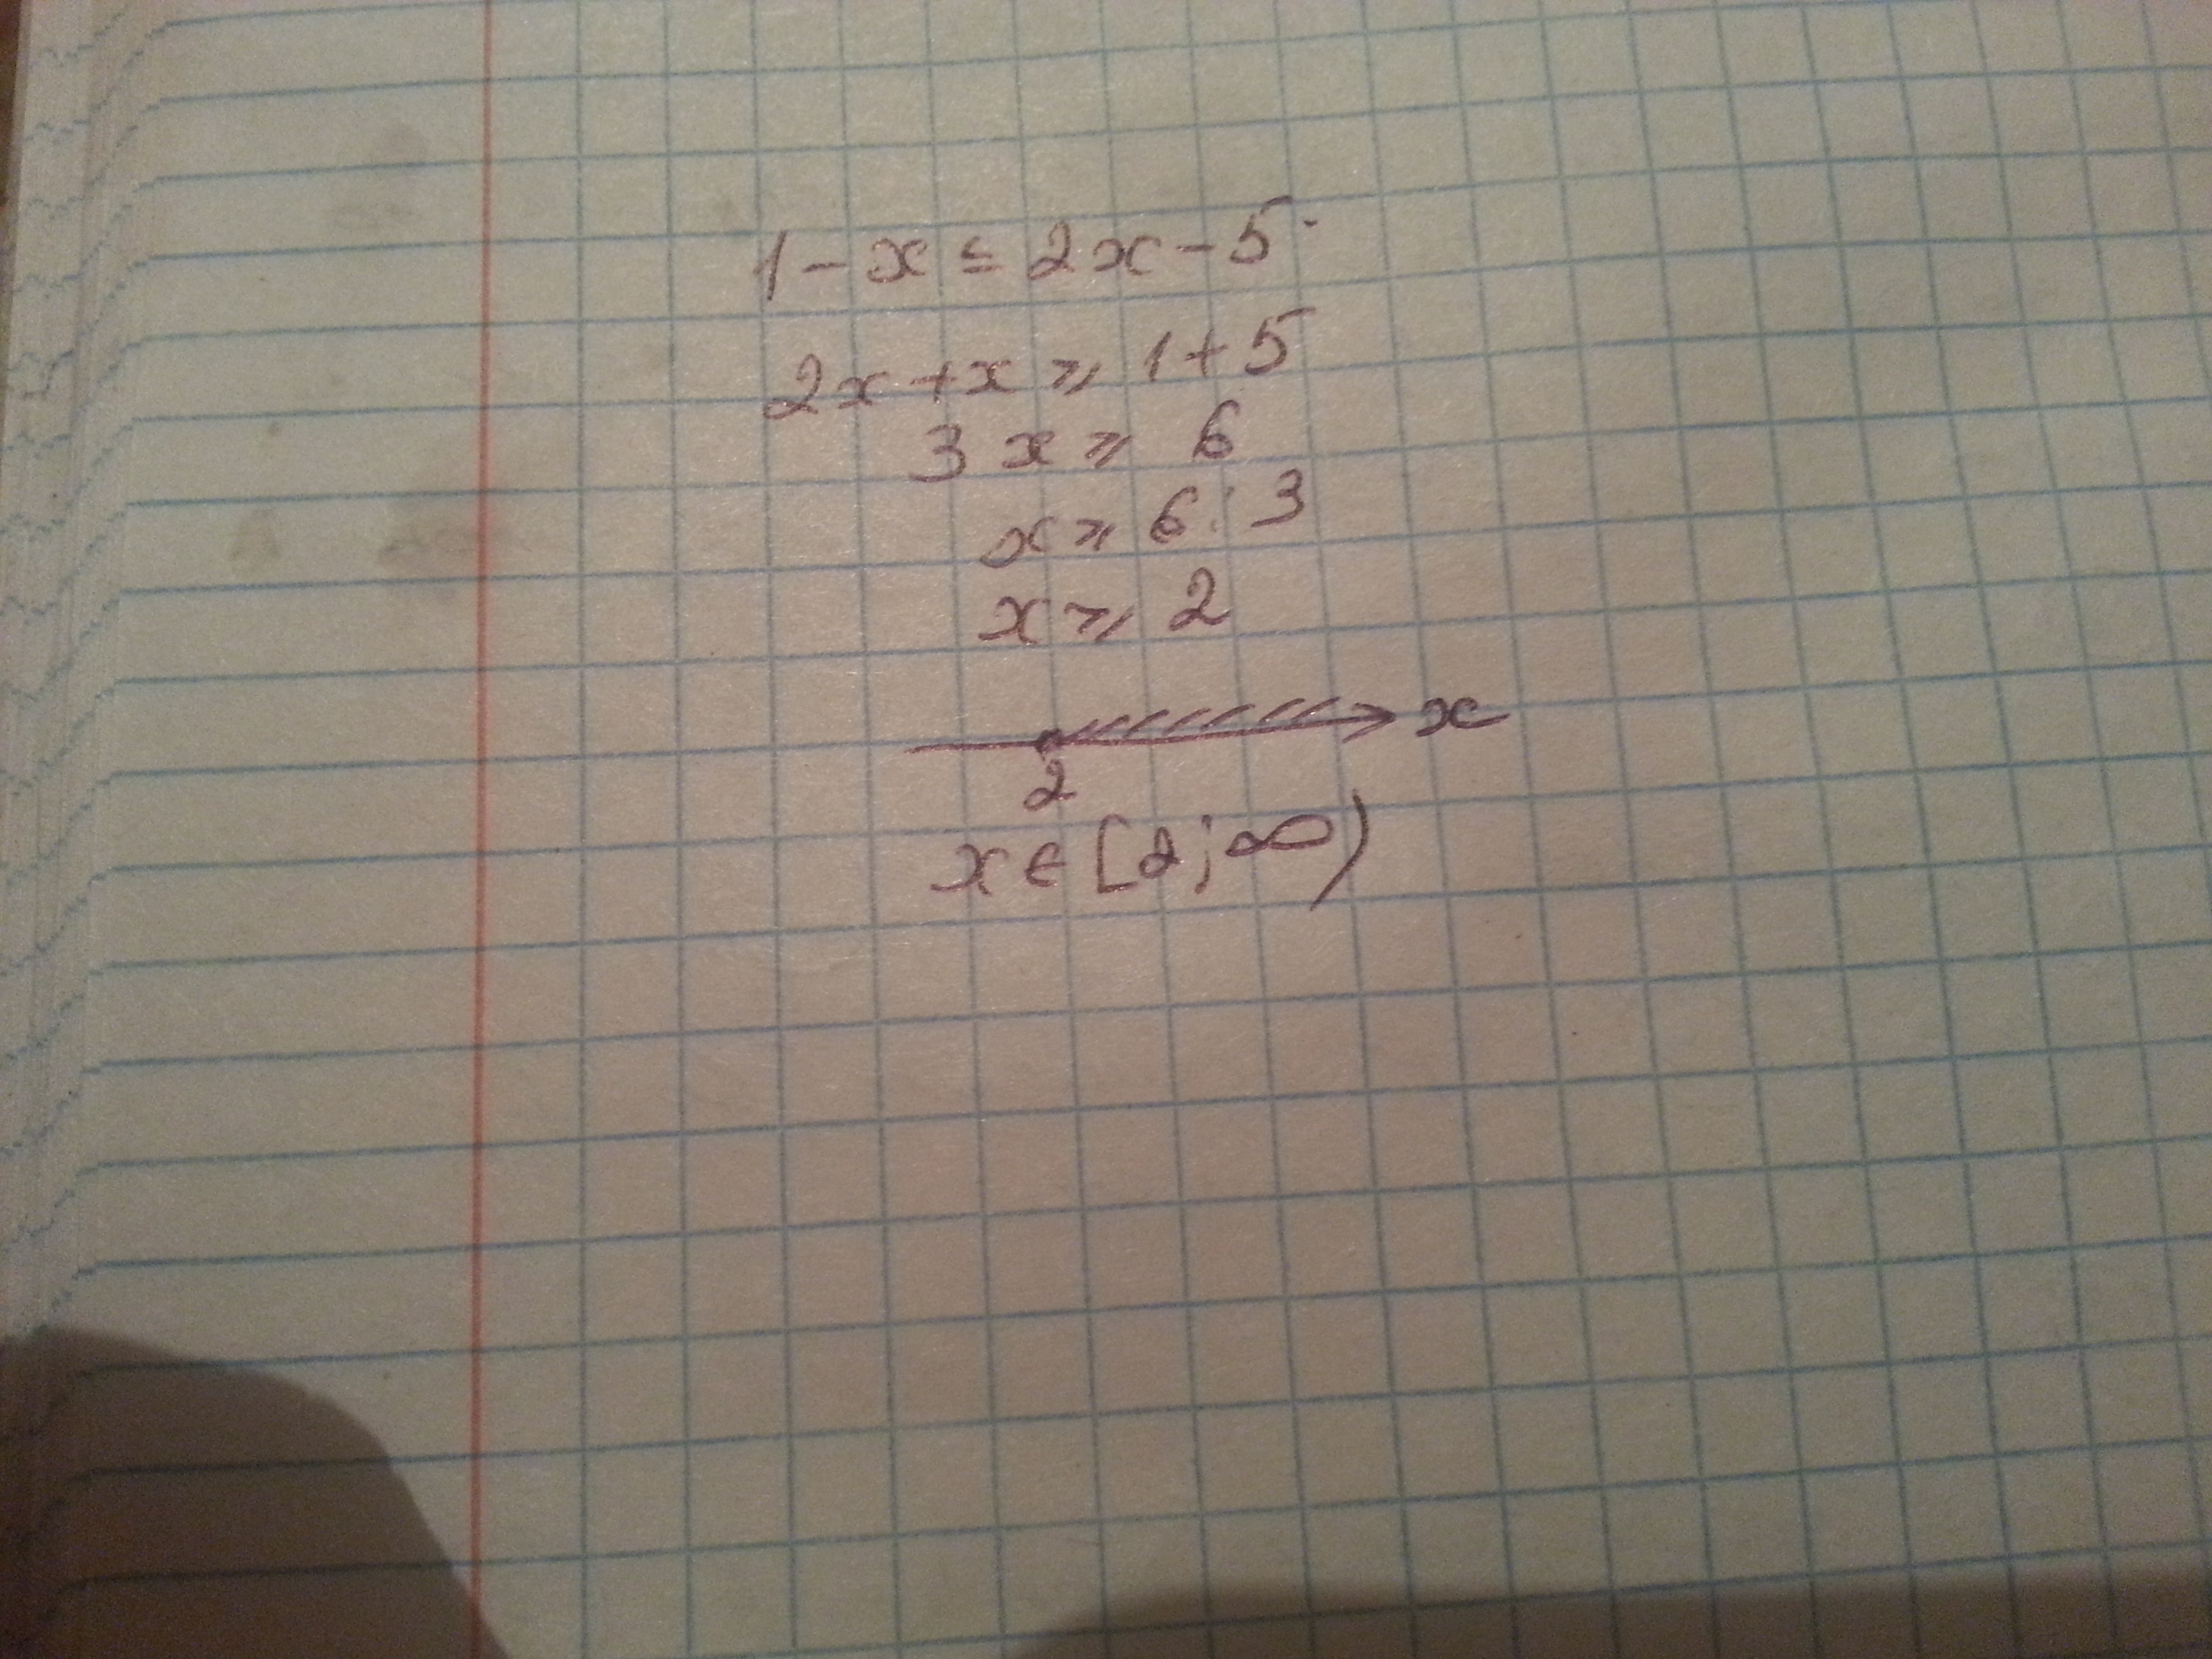 1 - x ≤ 2x - 5
2x + x ⩾ 1 + 5
3x ⩾ 6
x ⩾ 6 : 3
x ⩾ 2
x
2
x ∈ [2; ∞)